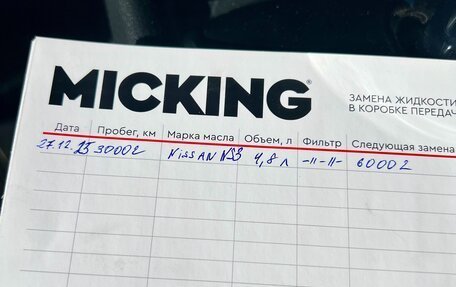 MICKING®
ЗАМЕНА ЖИДКОСТИ
В КОРОБКЕ ПЕРЕДАЧ
Дата Пробег, км Марка масла Объем, л Фильтр Следующая замена
27.12.25 30002 NISSAN NS3 4,8 л -"-"- 60002